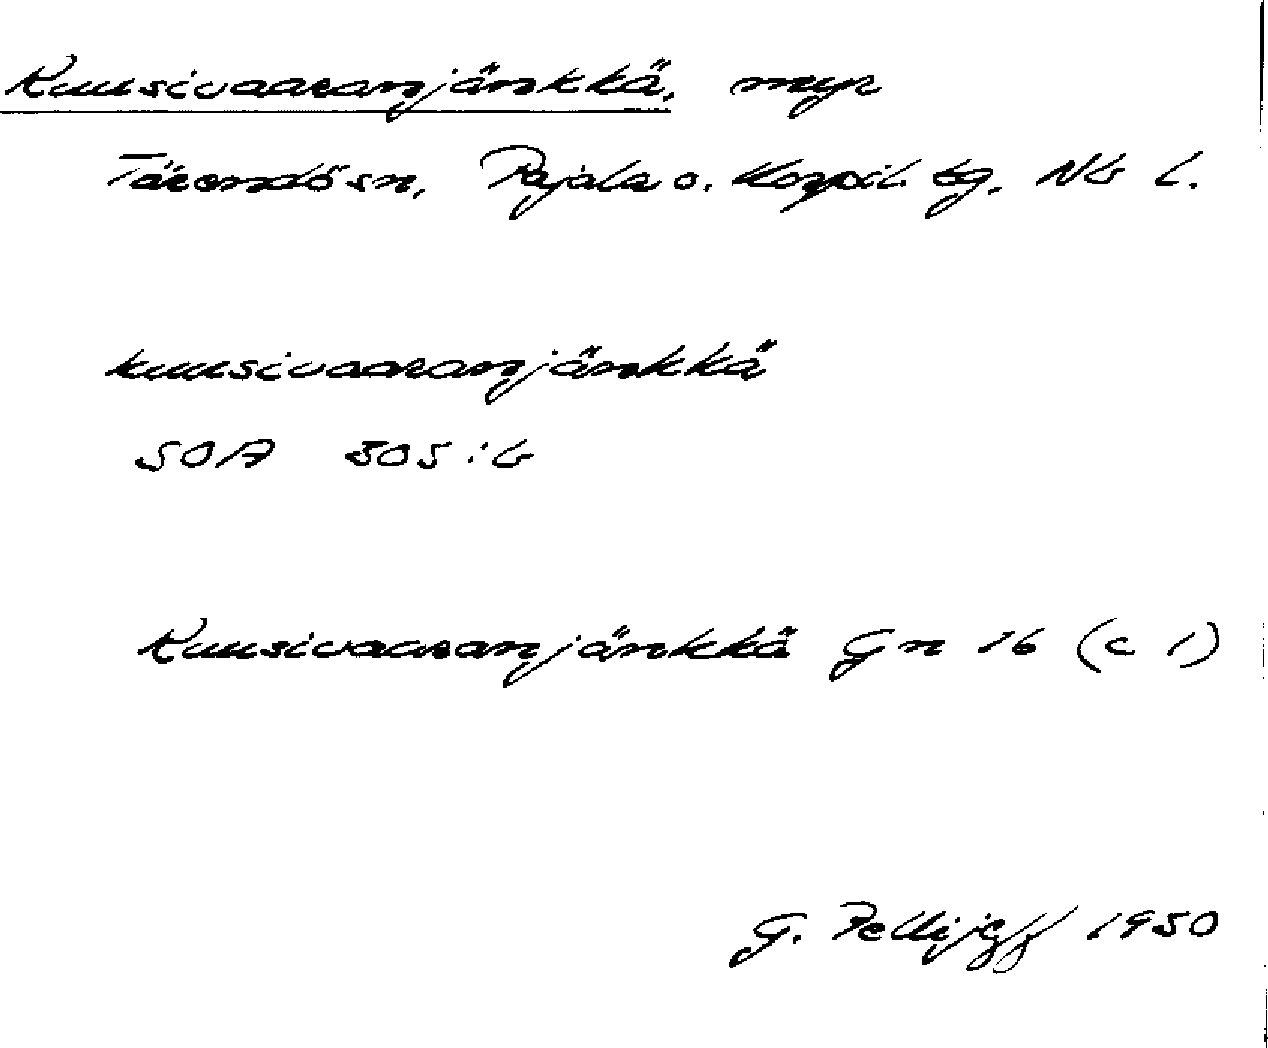 Kuusivaaranjänkkä, myr
Tärendö sn, Pajala o. Korpil. tg, Nb l.
kuusivaaranjänkkä
SOA 305:6
Kuusivaaranjänkkä Gn 16 (c 1)
G. Pellijeff 1950